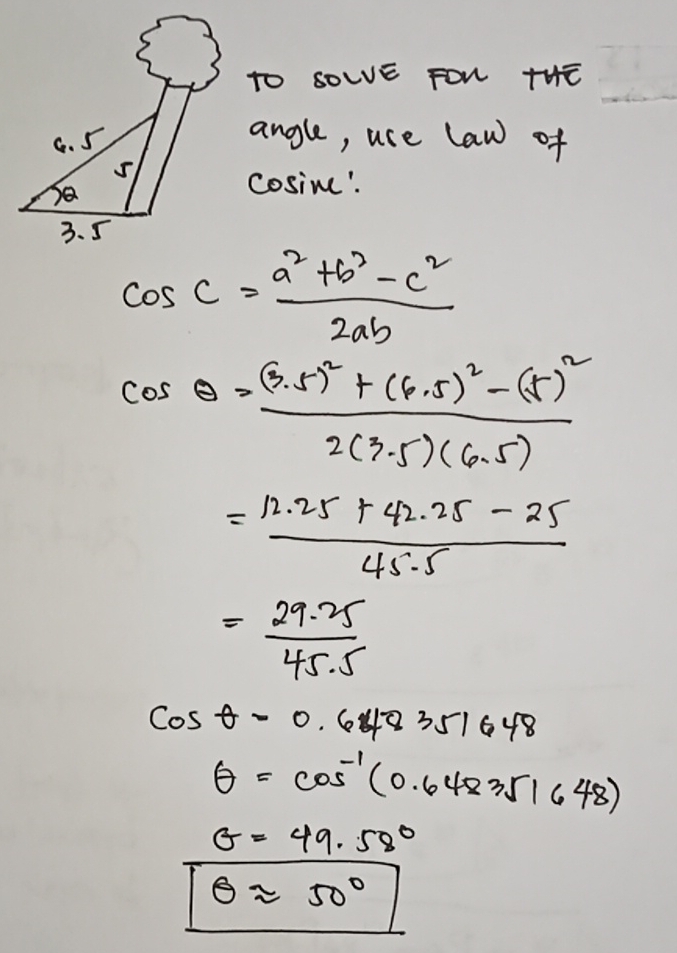 TO SOLVE FOR THE
angle, use law of
cosine!
6.5
5
θ
3.5
cos C = a² + b² - c²
2ab
cos θ = (3.5)² + (6.5)² - (5)²
2(3.5)(6.5)
= 12.25 + 42.25 - 25
45.5
= 29.25
45.5
cos θ = 0.648351648
θ = cos⁻¹(0.648351648)
θ = 49.58°
θ ≈ 50°